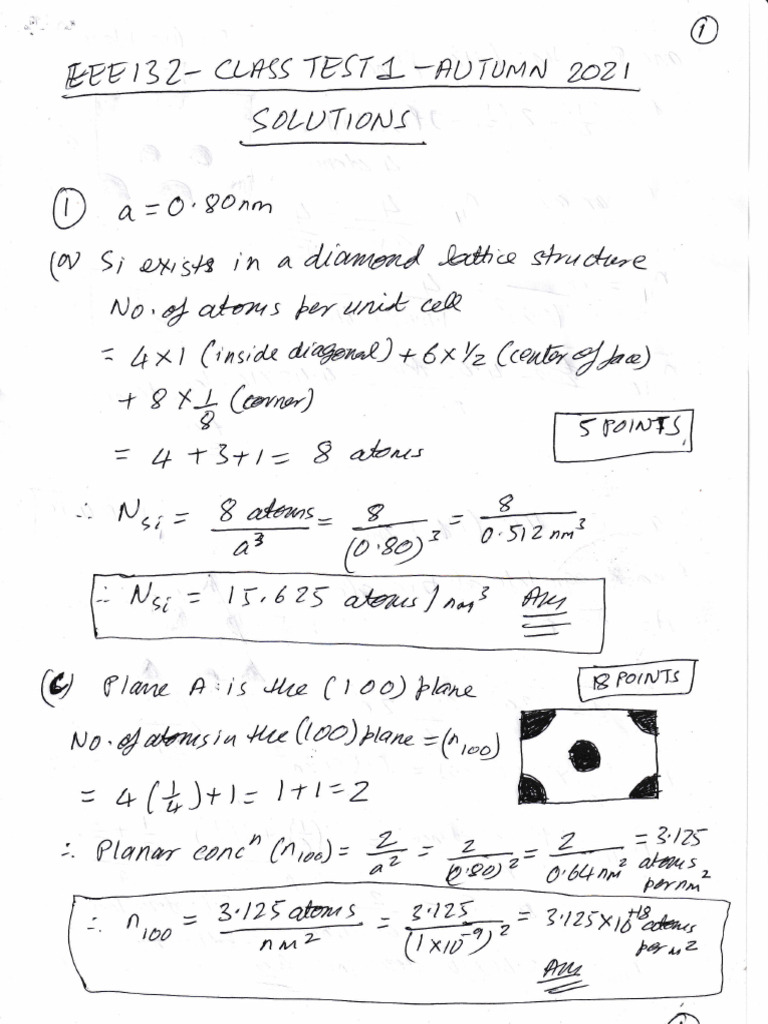 ①
EEE132 - CLASS TEST 1 - AUTUMN 2021
SOLUTIONS
① a = 0.80nm
(a) Si exists in a diamond lattice structure
No. of atoms per unit cell
= 4×1 (inside diagonal) + 6×1/2 (center of face)
+ 8 × 1/8 (corner)
= 4+3+1 = 8 atoms
5 POINTS
∴ N_Si = 8 atoms/a³ = 8/(0.80)³ = 8/0.512 nm³
∴ N_Si = 15.625 atoms/nm³ Ans
18 POINTS
(c) Plane A is the (100) plane
No. of atoms in the (100) plane = (n₁₀₀)
= 4(1/4)+1 = 1+1 = 2
∴ Planar concⁿ (n₁₀₀) = 2/a² = 2/(0.80)² = 2/0.64nm² = 3.125 atoms per nm²
∴ n₁₀₀ = 3.125 atoms/nm² = 3.125/(1×10⁻⁹)² = 3.125×10⁺¹⁸ atoms per m²
Ans